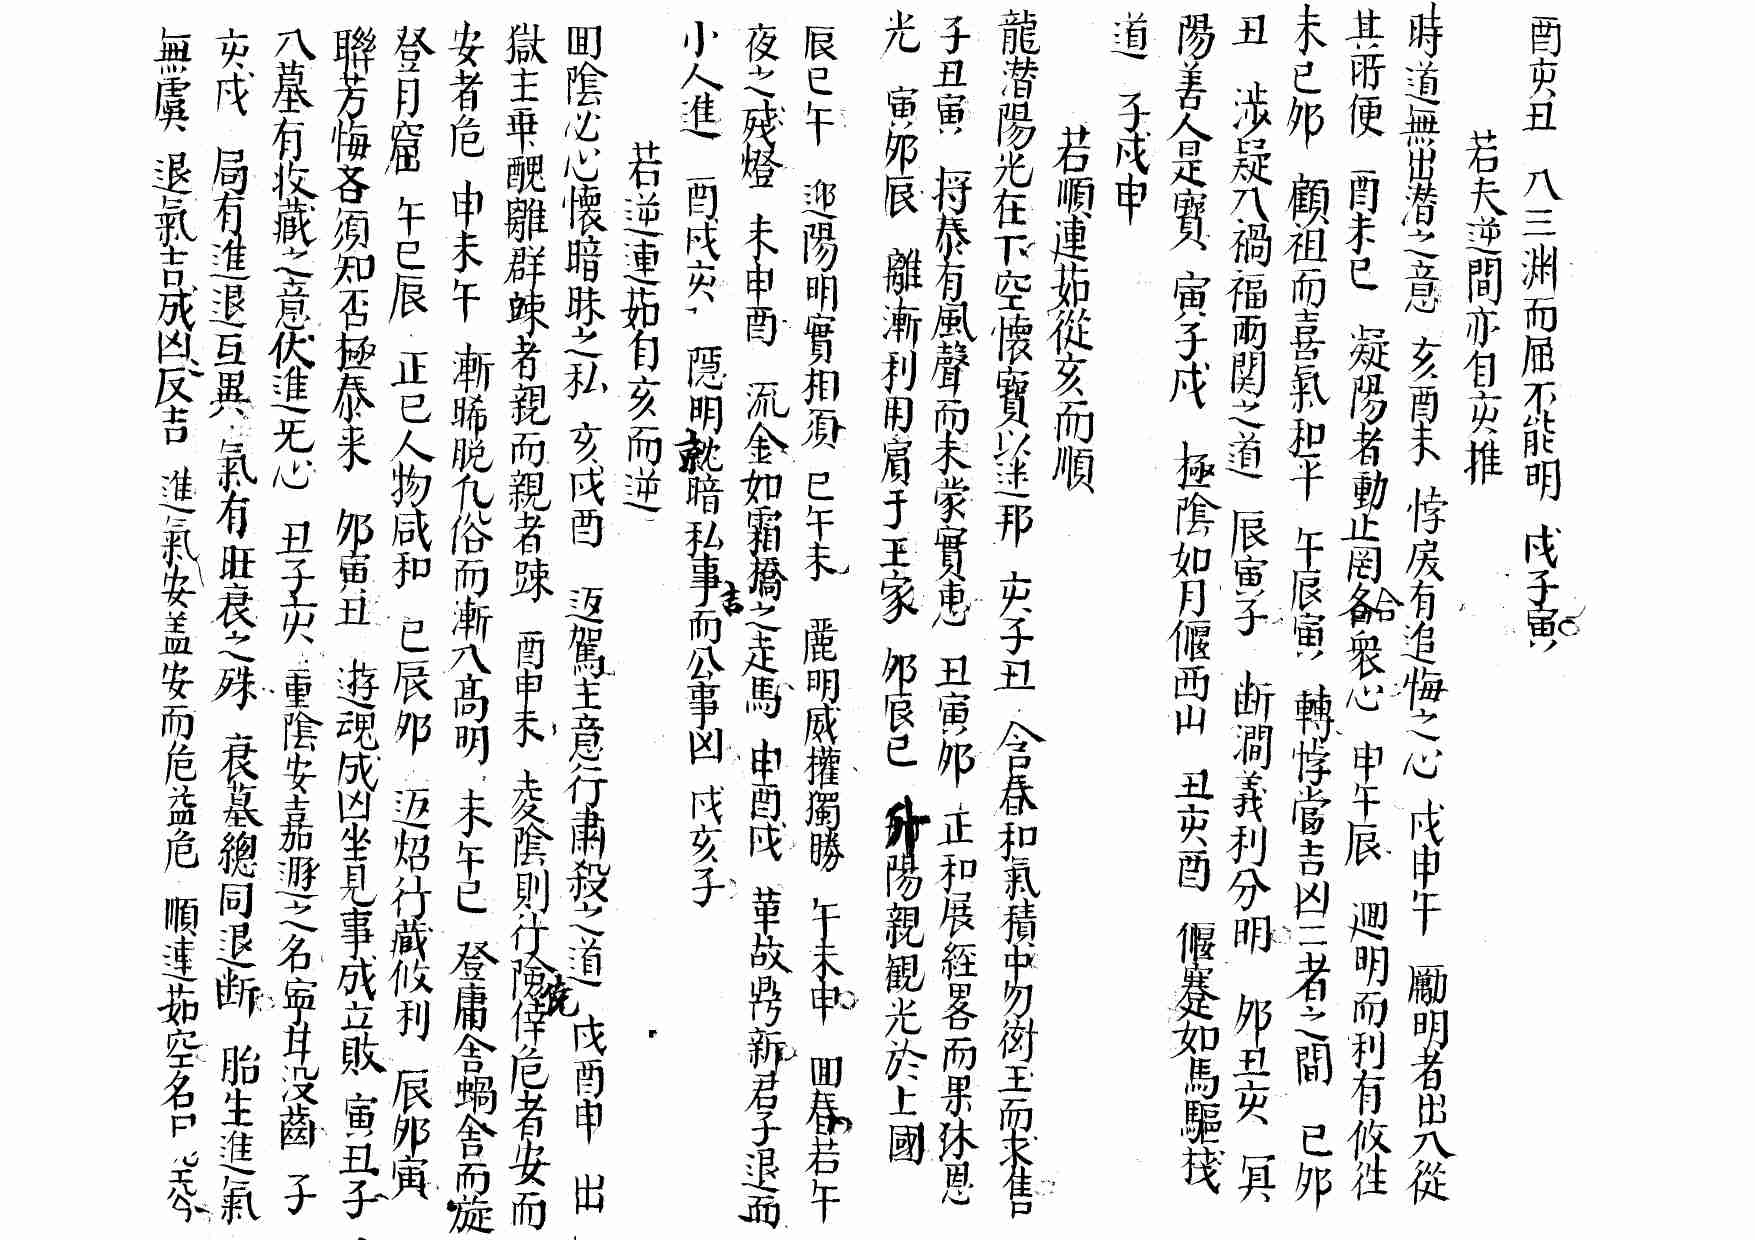 酉亥丑　入三渊而屈不能明　戌子寅
若夫逆間亦自亥推
時遁無出潜之意　亥酉未　悖戾有追悔之心　戌申午　勵明者出入從
其所便　酉未巳　凝陽者動止罔咎合衆心　申午辰　迴明而利有攸往
未巳卯　顧祖而喜氣和平　午辰寅　轉悖當吉凶二者之間　巳卯
丑　涉疑入禍福兩関之道　辰寅子　断澗義利分明　卯丑亥　冥
陽善人是寳　寅子戌　極陰如月偃西山　丑亥酉　偃蹇如馬驅棧
道　子戌申
若順連茹從亥而順
龍潜陽光在下空懷寳以迷邦　亥子丑　含春和氣積中勿衒玉而求售
子丑寅　将泰有風聲而未蒙實惠　丑寅卯　正和展経畧而果沐恩
光　寅卯辰　離漸利用賔于王家　卯辰巳　升陽親観光於上國
辰巳午　迎陽明實相須　巳午未　麗明威權獨勝　午未申　囬春若午
夜之残燈　未申酉　流金如霜橋之走馬　申酉戌　革故鼎新君子退而
小人進　酉戌亥　隱明就暗私事吉而公事凶　戌亥子
若逆連茹自亥而逆
囬陰必心懷暗昧之私　亥戌酉　返駕主意行肅殺之道　戌酉申　出
獄主乖醜離群踈者親而親者踈　酉申未　凌陰則行險僥倖危者安而
安者危　申未午　漸晞脱凡俗而漸入高明　未午巳　登庸舍蝸舍而旋
登月窟　午巳辰　正巳人物咸和　巳辰卯　返炤行藏攸利　辰卯寅
聯芳悔吝須知否極泰来　卯寅丑　遊魂成凶坐見事成立敗　寅丑子
入墓有收藏之意伏進无心　丑子亥　重陰安嘉遯之名寕甘没齒　子
亥戌　局有進退互異　氣有旺衰之殊　衰墓總同退断　胎生進氣
無虞　退氣吉成凶凶反吉　進氣安盖安而危益危　順連茹空名尸